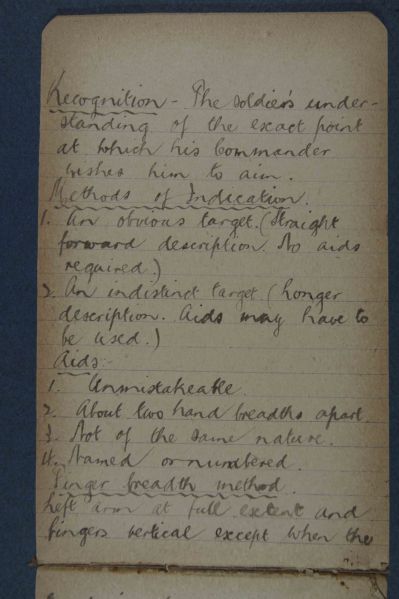 Recognition - The soldier's under-
standing of the exact point
at which his Commander
wishes him to aim.
Methods of Indication.
1. An obvious target. (Straight
forward description. No aids
required.)
2. An indistinct target (Longer
description. Aids may have to
be used.)
Aids:-
1. Unmistakeable.
2. About two hand breadths apart.
3. Not of the same nature.
4. Named or numbered.
Finger breadth method.
Left arm at full extent and
fingers vertical except when the